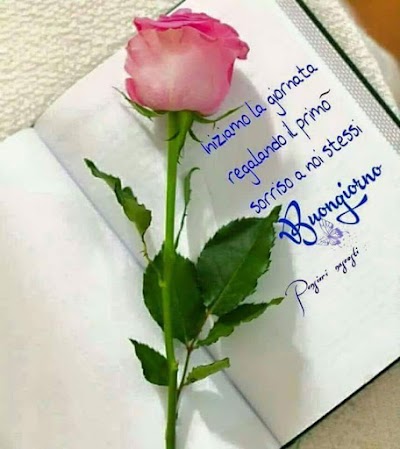 Iniziamo la giornata
regalando il primo
sorriso a noi stessi
Buongiorno
Pensieri